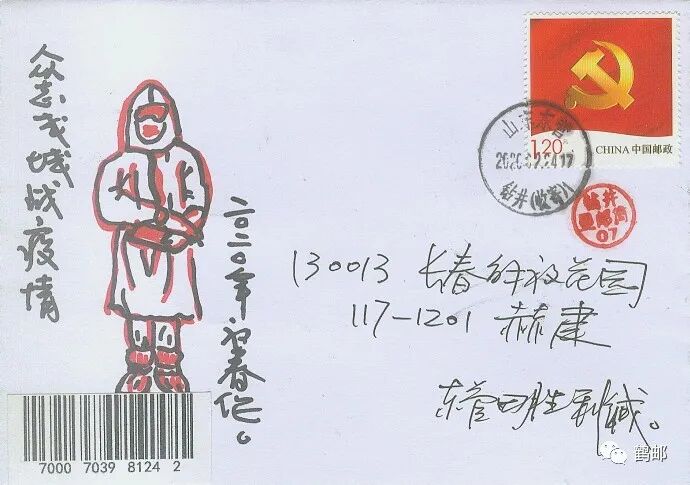 众志成城战疫情
二〇二〇年初春作。
1.20元
CHINA 中国邮政
山东东营
2020.02.24.17
钻井(收寄)1
钻井
07
130013 长春解放花园
117-1201 赫建
东营田胜利缄。
7000 7039 8124 2
鹤邮